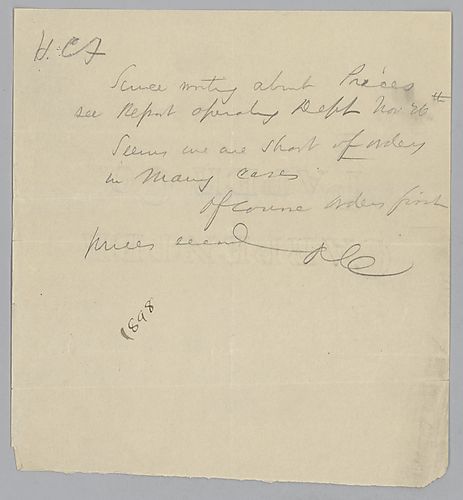 H.C.F
Since writing about Prices
see Report operating Dept Nov 26th
Seems we are short of orders
in Many cases
Of course orders first
prices second
1898